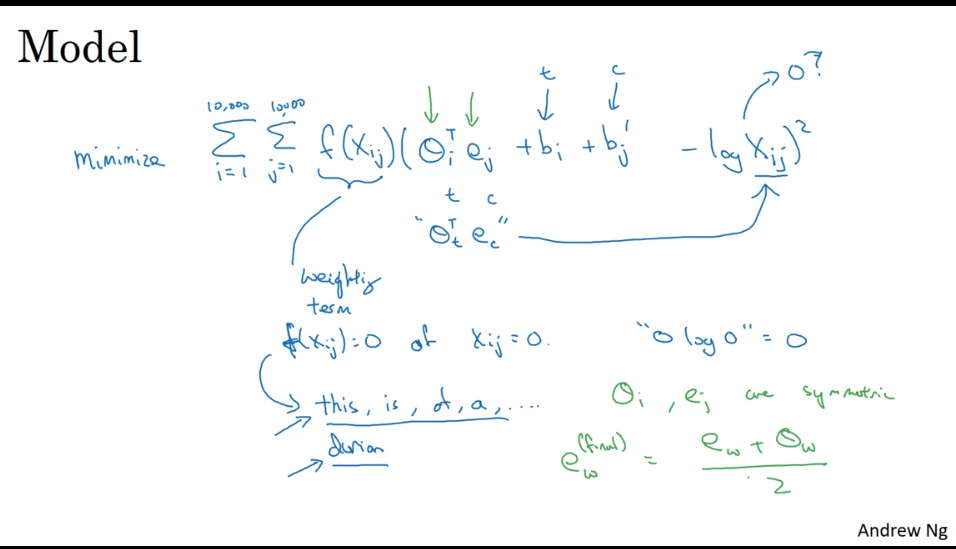 Model
t c
10,000 10,000 0?
minimize Σ Σ f(Xij)(θiᵀ ej + bi + bj' - log Xij)²
i=1 j=1
t c
"θtᵀ ec"
weighting
term
f(Xij)=0 if Xij=0. "0 log 0" = 0
this, is, of, a, ....
durian
θi, ej are symmetric
ew^(final) = (ew + θw) / 2
Andrew Ng